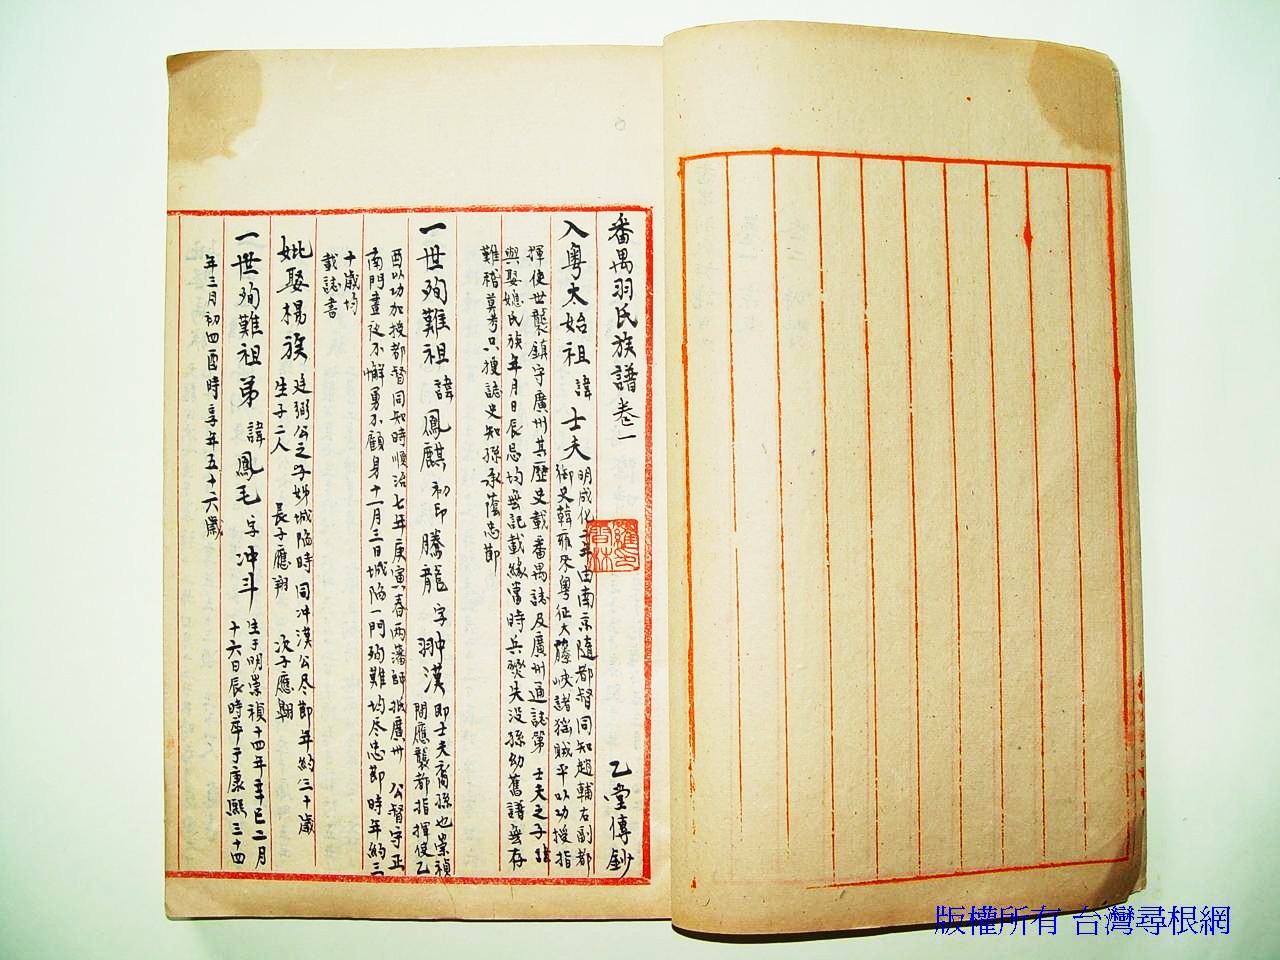 番禺羽氏族譜卷一 乙堂傳鈔
入粵太始祖 諱士夫 明成化二年由南京隨都督同知趙輔右副都
御史韓雍來粵征大藤峽諸猺賊平以功授指
揮使世襲鎮守廣州其歷史載番禺誌及廣州通誌第 士夫之子諱
與娶媳氏族年月日辰忌均無記載緣當時兵燹失没孫幼舊譜無存
難稽莫考只搜誌史知孫承蔭忠節
一世殉難祖 諱鳳麒 初印騰龍 字翀漢 即士夫裔孫也崇禎
間應襲都指揮使乙
酉以功加授都督同知時順治七年庚寅春两藩師抵廣州 公督守正
南門晝夜不懈勇不顧身十一月三日城陷一門殉難均尽忠節時年約三
十歲均
載誌書
妣娶楊族 廷弼公之子姊城陷時同冲漢公尽節年約三十歲
生子二人 長子應翔 次子應翱
一世殉難祖弟 諱鳳毛 字冲斗 生于明崇禎十四年辛巳二月
十六日辰時卒于康熙三十四
年三月初四酉時享年五十六歲
版權所有 台灣尋根網